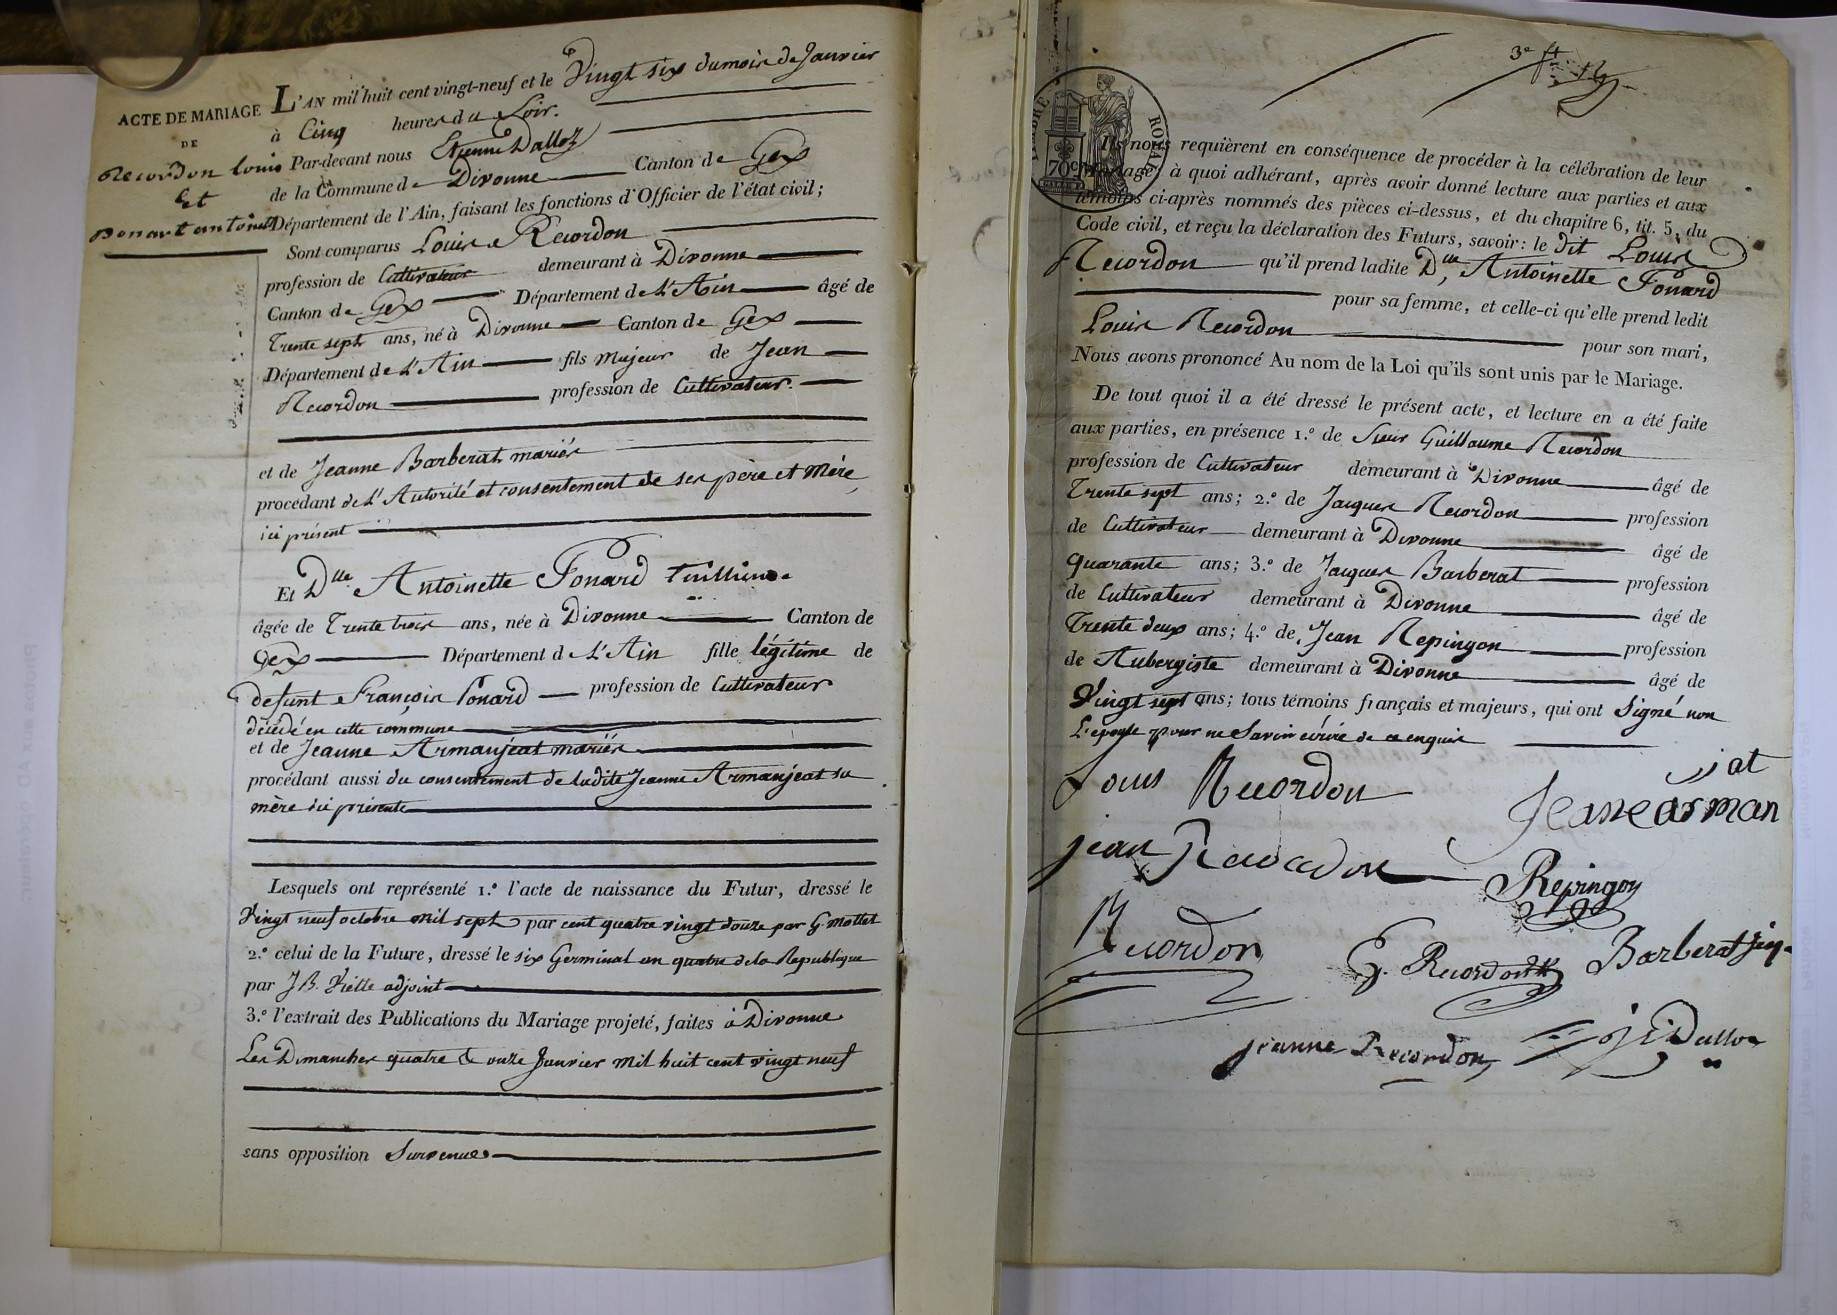 ACTE DE MARIAGE
DE
Recordon Louis
Et
Ponart antoinette
L'AN mil huit cent vingt-neuf et le Vingt six du mois de Janvier
à Cinq heures du Soir.
Par-devant nous Etienne Dalloz
de la Commune de Divonne Canton de Gex
Département de l'Ain, faisant les fonctions d'Officier de l'état civil;
Sont comparus Louis Recordon
profession de Cultivateur demeurant à Divonne
Canton de Gex Département de L'Ain âgé de
Trente sept ans, né à Divonne Canton de Gex
Département de L'Ain fils Majeur de Jean
Recordon profession de Cultivateur.
et de Jeanne Barberat mariés
procédant de L'Autorité et consentement de ses père et Mère,
ici présent
Et Dlle Antoinette Ponard
âgée de Trente trois ans, née à Divonne Canton de
Gex Département de L'Ain fille légitime de
defunt François Ponard profession de Cultivateur
décédé en cette commune
et de Jeanne Armanjeat mariés
procédant aussi du consentement de ladite Jeanne Armanjeat sa
mère ici présente
Lesquels ont représenté 1.º l'acte de naissance du Futur, dressé le
Vingt neuf octobre mil sept par cent quatre vingt douze par G. Mottet
2.º celui de la Future, dressé le six Germinal an quatre de la Republique
par J B. Vielle adjoint
3.º l'extrait des Publications du Mariage projeté, faites à Divonne
Les Dimanches quatre & onze Janvier mil huit cent vingt neuf
sans opposition Survenue
3e
TIMBRE ROYAL
70c
Ils nous requièrent en conséquence de procéder à la célébration de leur
Mariage; à quoi adhérant, après avoir donné lecture aux parties et aux
témoins ci-après nommés des pièces ci-dessus, et du chapitre 6, tit. 5, du
Code civil, et reçu la déclaration des Futurs, savoir: le dit Louis
Recordon qu'il prend ladite Dlle, Antoinette Ponard
pour sa femme, et celle-ci qu'elle prend ledit
Louis Recordon pour son mari,
Nous avons prononcé Au nom de la Loi qu'ils sont unis par le Mariage.
De tout quoi il a été dressé le présent acte, et lecture en a été faite
aux parties, en présence 1.º de Sieur Guillaume Recordon
profession de Cultivateur demeurant à Divonne âgé de
Trente sept ans; 2.º de Jacques Recordon profession
de Cultivateur demeurant à Divonne âgé de
quarante ans; 3.º de Jacques Barberat profession
de Cultivateur demeurant à Divonne âgé de
Trente deux ans; 4.º de Jean Repingon profession
de Aubergiste demeurant à Divonne âgé de
Vingt sept ans; tous témoins français et majeurs, qui ont Signé non
L'epouse pour ne Savoir écrire de ce enquise
Louis Recordon
jat
Jeane arman
jean Recordon
Repingon
Recordon
G. Recordon
Barberat Jaq
jeanne Recordon
Dalloz